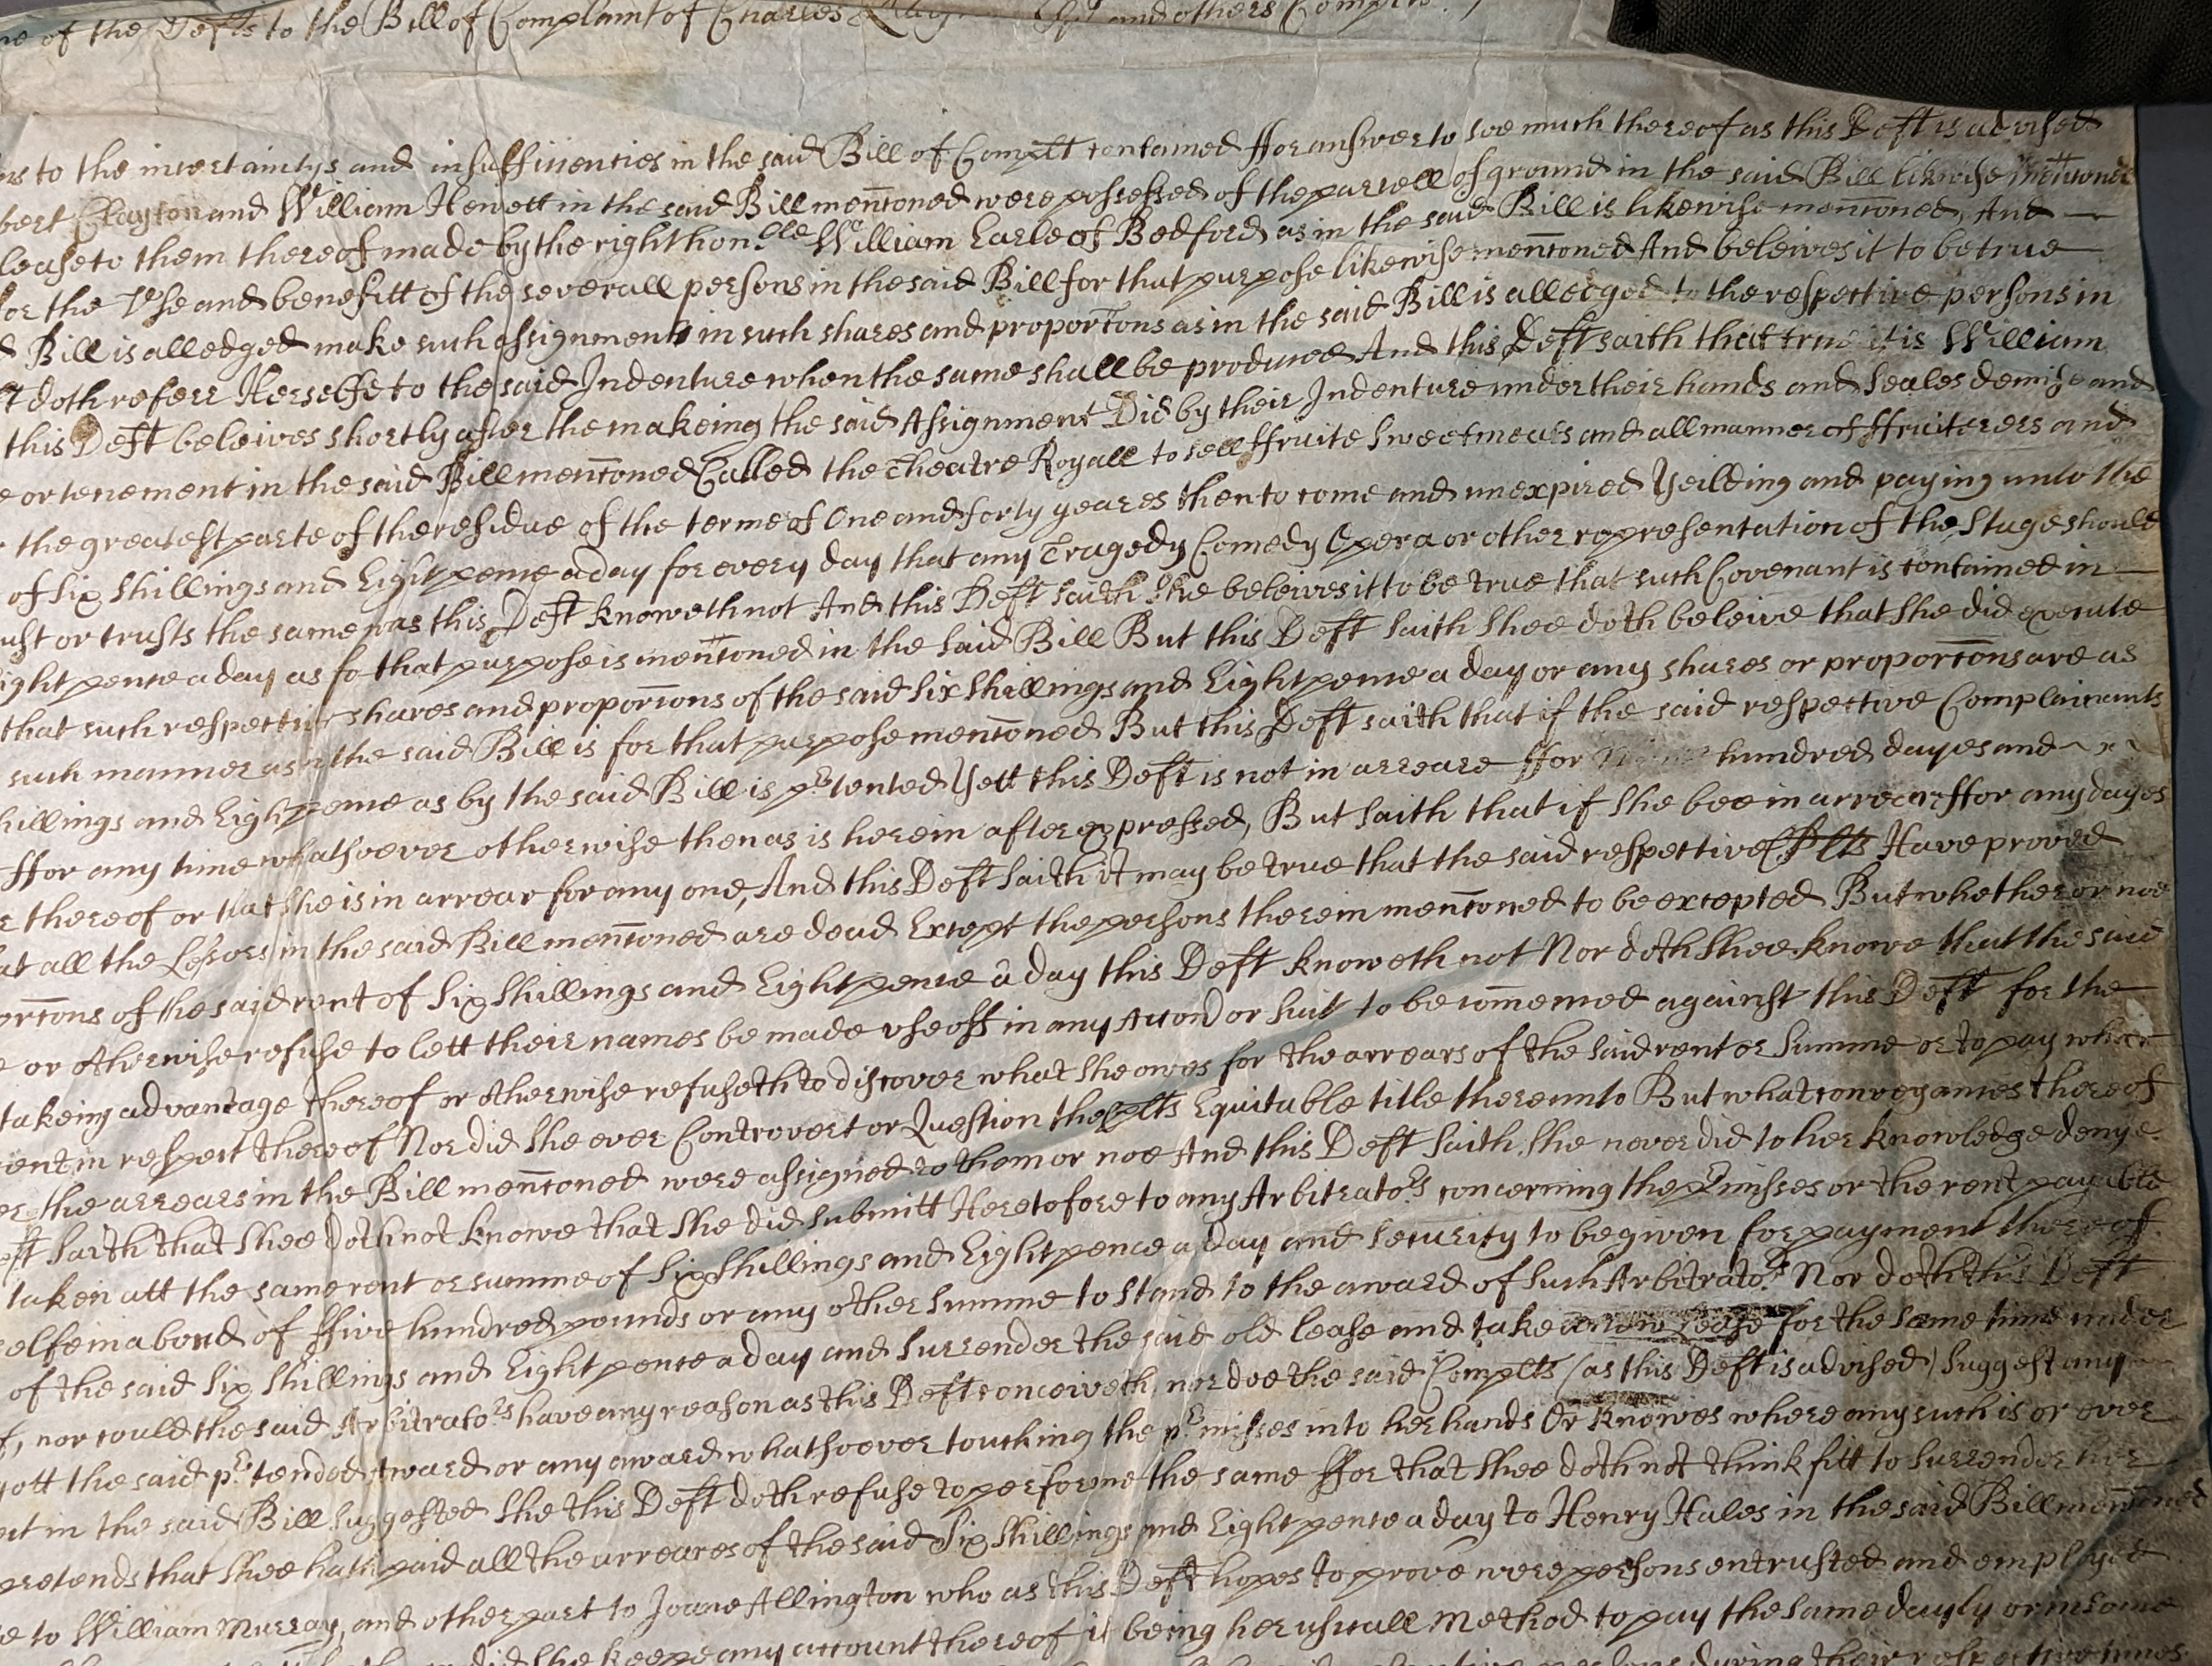 of the Defts to the Bill of Complaint of Charles and others Complts
to the incertaintys and insufficiencies in the said Bill of Complt contained ffor answer to soe much thereof as this Deft is advised
Clayton and William Hewett in the said Bill menconed were possessed of the parcell of ground in the said Bill likewise menconed
lease to them thereof made by the right hon.ble William Earle of Bedford as in the said Bill is likewise menconed, And
for the Vse and benefitt of the severall persons in the said Bill for that purpose likewise menconed And beleives it to be true
Bill is alledged make such assignment in such shares and proporcons as in the said Bill is alledged to the respective persons in
doth referr Herselfe to the said Indenture when the same shall be produced And this Deft saith that true it is William
this Deft beleives shortly after the makeing the said Assignment Did by their Indenture under their hands and Seales demise and
or tenement in the said Bill menconed Called the Theatre Royall to sell ffruite Sweetmeats and all manner of ffruiterers and
the greatest parte of the residue of the terme of One and forty yeares then to come and unexpired Yeilding and paying unto the
of Six Shillings and Eight pence a day for every day that any Tragedy Comedy Opera or other representation of the Stage should
or trusts the same was this Deft knoweth not And this Deft saith She beleives it to be true that such Covenant is contained in
pence a day as fo that purpose is menconed in the said Bill But this Deft saith Shee doth beleive that She did execute
that such respective shares and proporcons of the said Six Shillings and Eight pence a day or any shares or proporcons are as
such manner as in the said Bill is for that purpose menconed But this Deft saith that if the said respective Complainants
shillings and Eight pence as by the said Bill is pr̃tented Yett this Deft is not in arreare ffor hundred dayes and
ffor any time whatsoever otherwise then as is herein after expressed, But Saith that if She bee in arrear ffor any dayes
thereof or that She is in arrear for any one, And this Deft Saith it may be true that the said respective Plts Have proved
all the Lessors in the said Bill menconed are dead Except the persons therein menconed to be excepted But whether or noe
of the said rent of Six Shillings and Eight pence a day this Deft knoweth not Nor doth Shee knowe that the said
or otherwise refuse to lett their names be made vse off in any Accon or Suit to be comenced against this Deft for the
takeing advantage thereof or otherwise refuseth to discover what She owes for the arrears of the said rent or Summe or to pay what
rent in respect thereof Nor did She ever Controvert or Question the plts Equitable title thereunto But what conveyances thereof
the arrears in the Bill menconed were assigned to them or noe And this Deft Saith She never did to her knowledge denye
Saith that Shee doth not knowe that She did Submitt Heretofore to any Arbitrators concerning the pr̃misses or the rent payable
taken att the same rent or summe of Six Shillings and Eight pence a day and Security to be given for payment thereof
in a bond of ffive hundred pounds or any other Summe to Stand to the award of Such Arbitrators Nor doth this Deft
of the said Six Shillings and Eight pence a day and Surrender the said old lease and take a new lease for the same time under
nor could the said Arbitrators have any reason as this Deft conceiveth, nor doe the said Complts (as this Deft is advised) Suggest any
gott the said pr̃tended Award or any award whatsoever touching the pr̃misses into her hands Or knowes where any such is or ever
in the said Bill Suggested She this Deft doth refuse to performe the same ffor that Shee doth not think fitt to Surrender her
pretends that Shee hath paid all the arreares of the said Six Shillings and Eight pence a day to Henry Hales in the said Bill menconed
to William Murray, and other part to Joane Allington who as this Deft hopes to prove were persons entrusted and employed
did She keepe any account thereof it being her usuall Method to pay the same dayly or in some
during their respective times